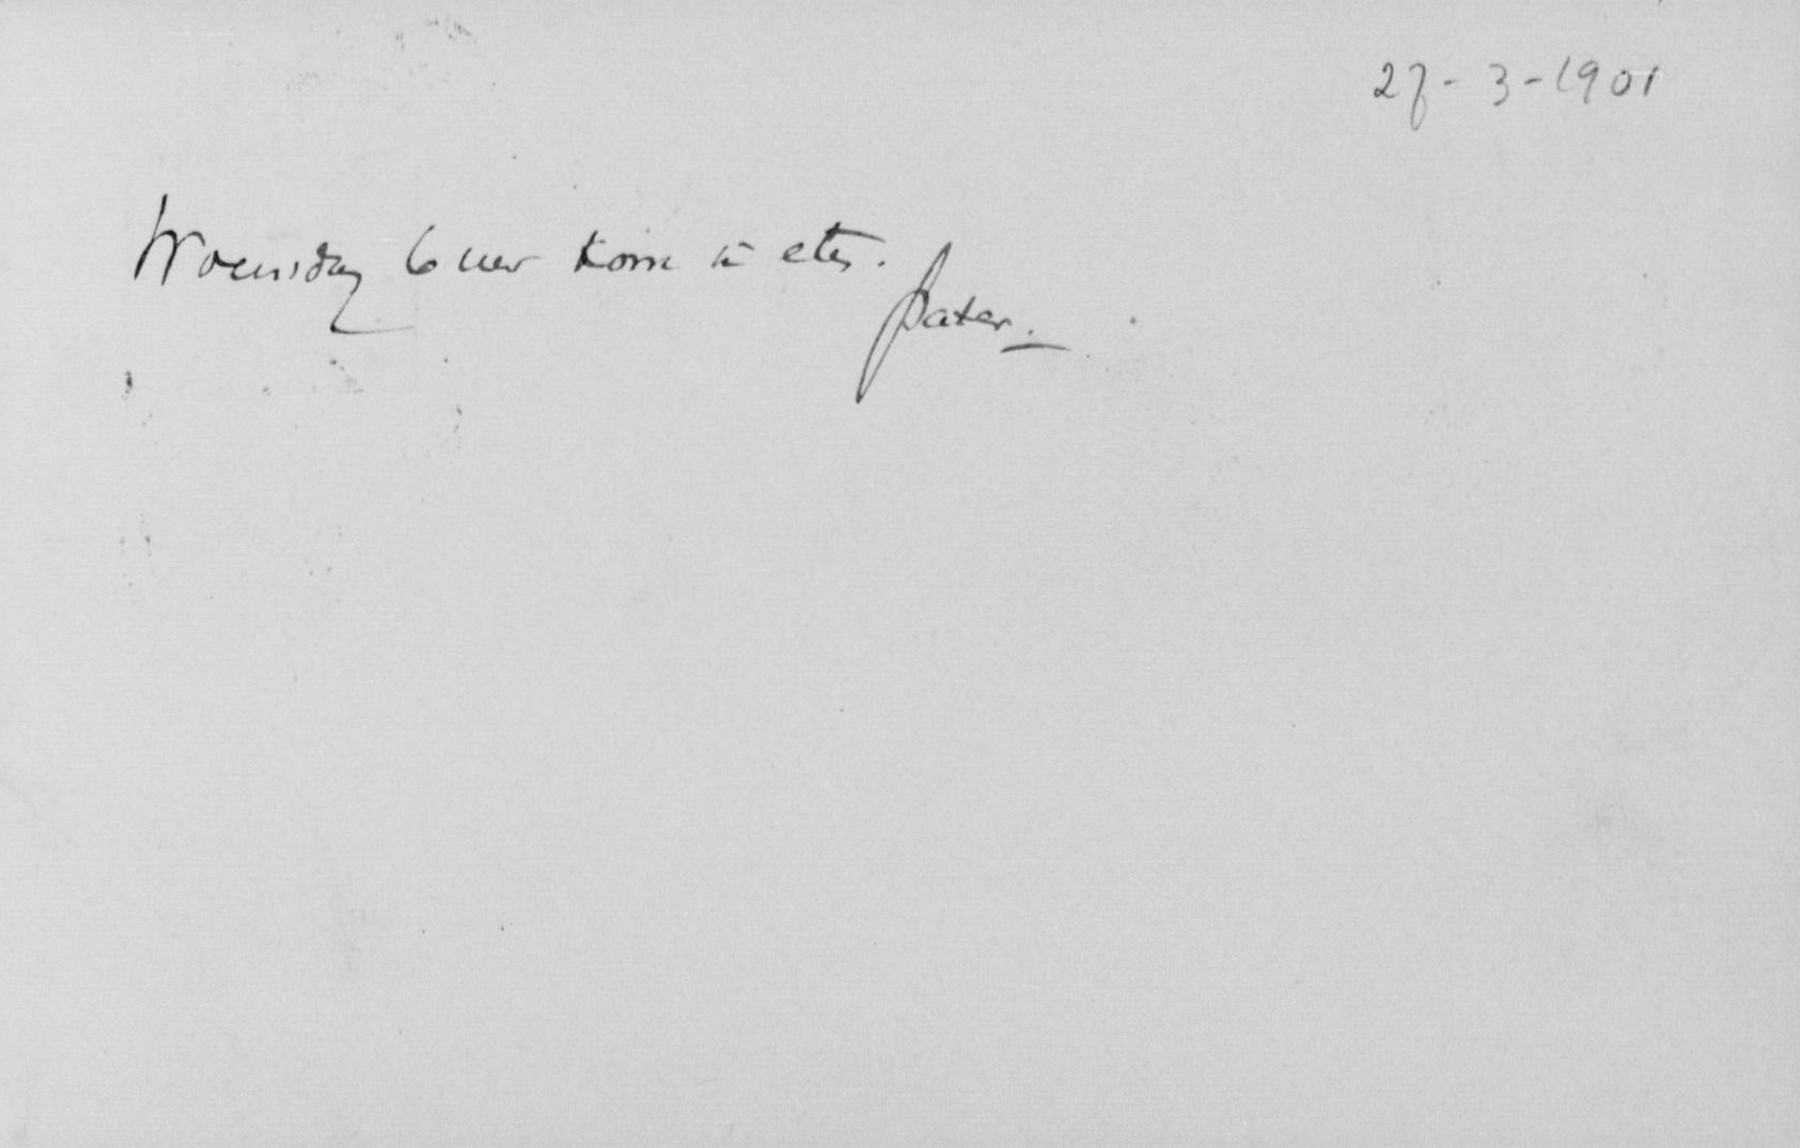 27-3-1901
Woensdag 6 uur kom ik eten.
pater.